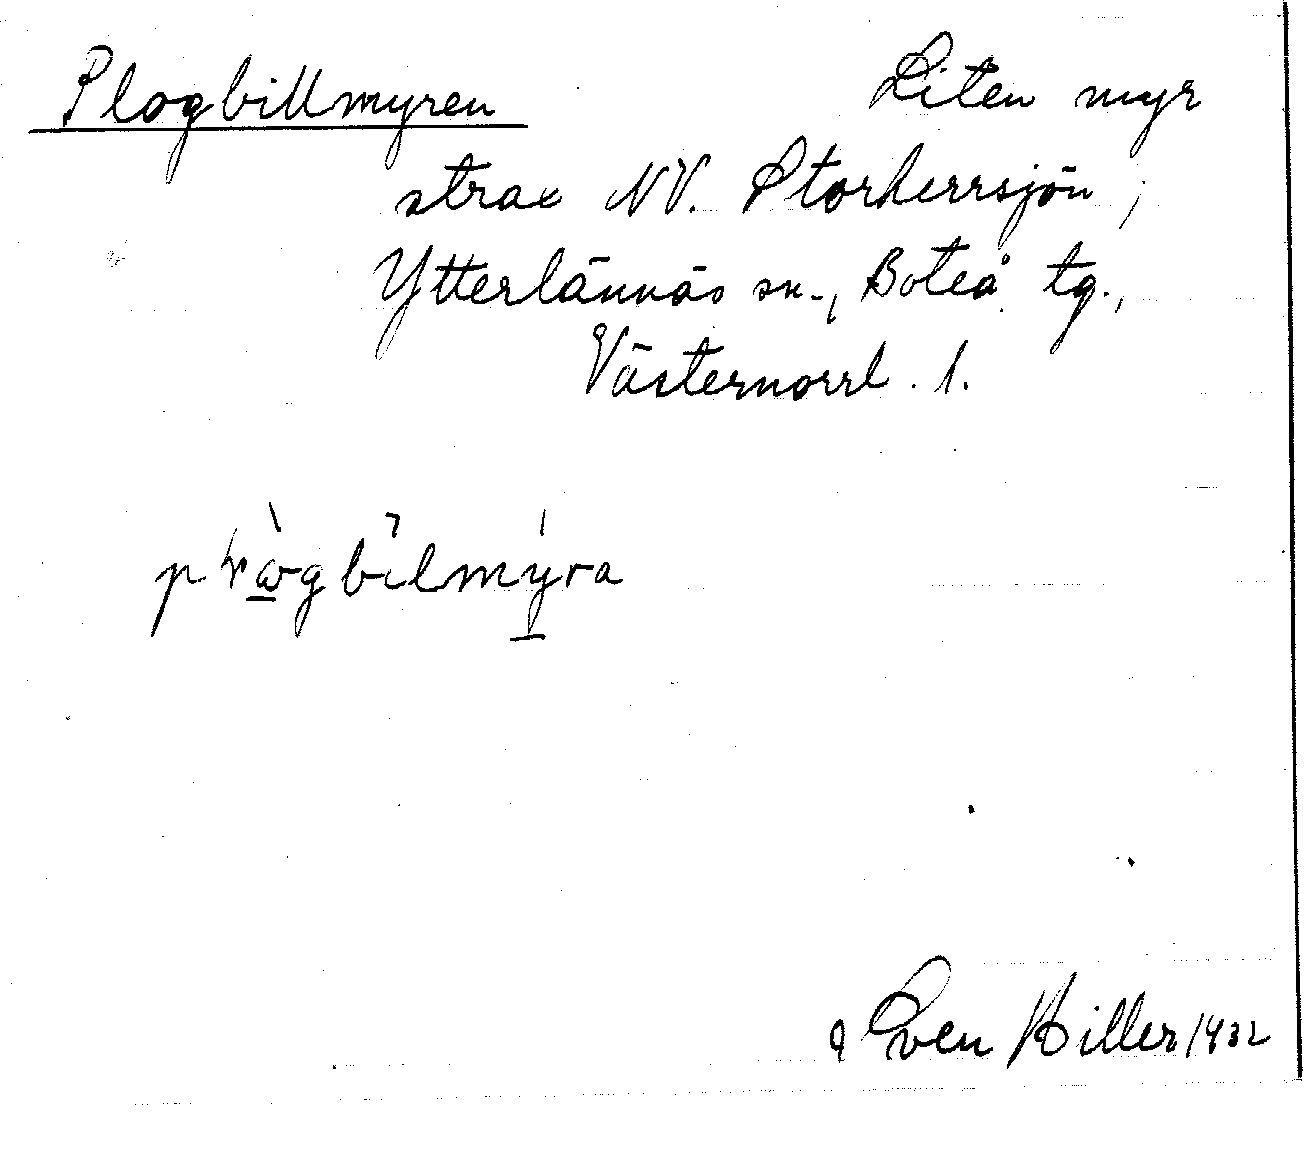 Plogbillmyren Liten myr
strax NV. Storherrsjön,
Ytterlännäs sn., Boteå tg.,
Västernorrl. l.
Sven Hiller 1932